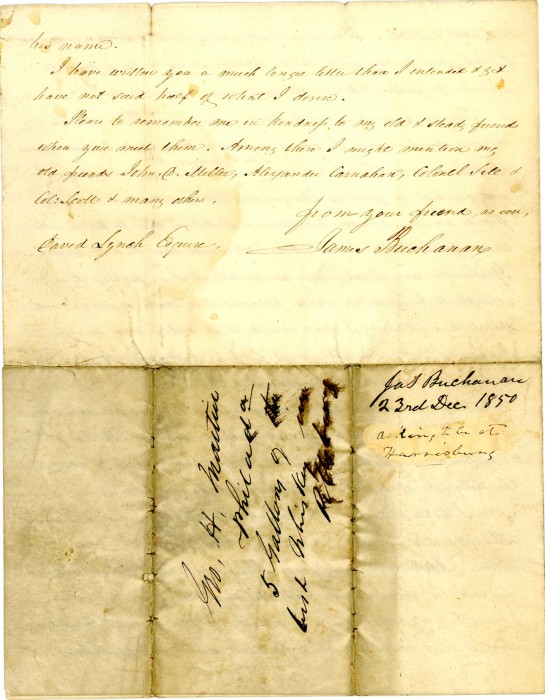 his name.
I have written you a much longer letter than I intended & yet
have not said half of what I desire.
Please to remember me in kindness to my old & steady friends
when you meet them. Among these I might mention my
old friends John B. Miller, Alexander Carnahan, Colonel Sill &
Col: Scott & many others.
from your friend, as ever,
David Lynch Esquire.
James Buchanan
Jas Buchanan
23rd Dec 1850
asking to be at
Harrisburg
Geo, H, Martin
Philada
5 Gallons of
best Whiskey